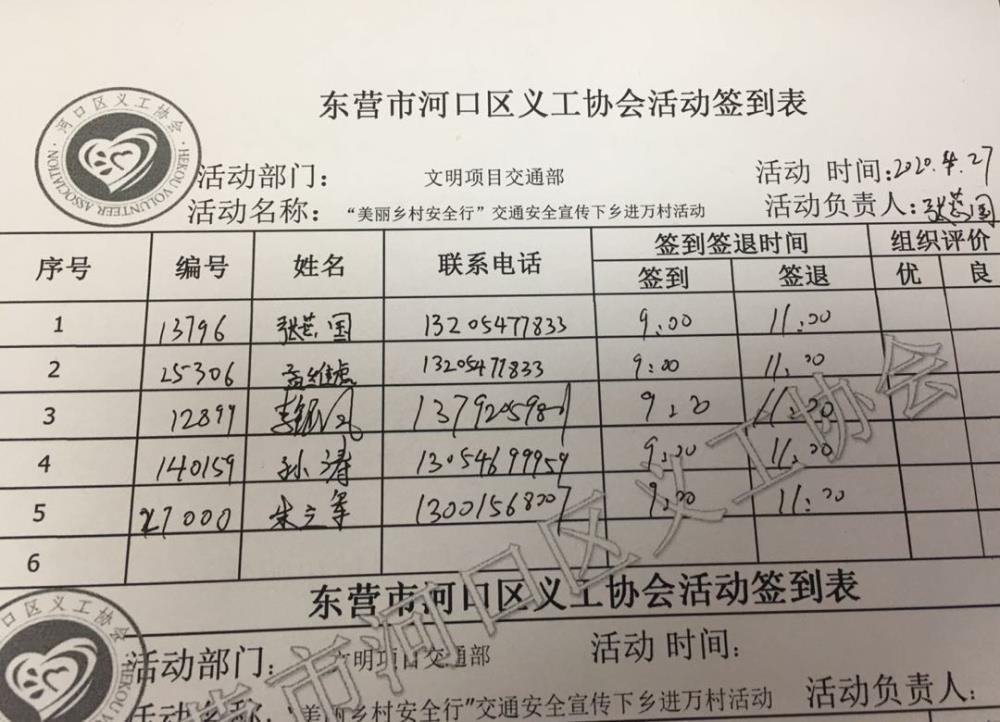 东营市河口区义工协会活动签到表
河口区义工协会
HEKOU VOLUNTEER ASSOCIATION
活动部门： 文明项目交通部 活动 时间：2020.4.27
活动名称： “美丽乡村安全行”交通安全宣传下乡进万村活动 活动负责人：国
序号 编号 姓名 联系电话 签到签退时间 组织评价
签到 签退 优 良
1 13796 国 13205477833 9:00 11:00
2 25306 孟维虎 13205477833 9:00 11:00
3 12899 李 9:00 11:00
4 140159 孙涛 13054699959 9:00 11:00
5 27000 朱军 13001568007 9:00 11:00
6
东营市河口区义工协会活动签到表
河口区义工协会
活动部门： 文明项目交通部 活动 时间：
活动名称： “美丽乡村安全行”交通安全宣传下乡进万村活动 活动负责人：
营市河口区义工协会